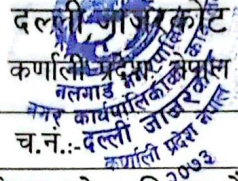 दल्ली जाजरकोट
कर्णाली प्रदेश, नेपाल
च.नं.:-
नलगाड
नगर कार्यपालिकाको
दल्ली जाजरकोट
कर्णाली प्रदेश नेपाल
२०७३